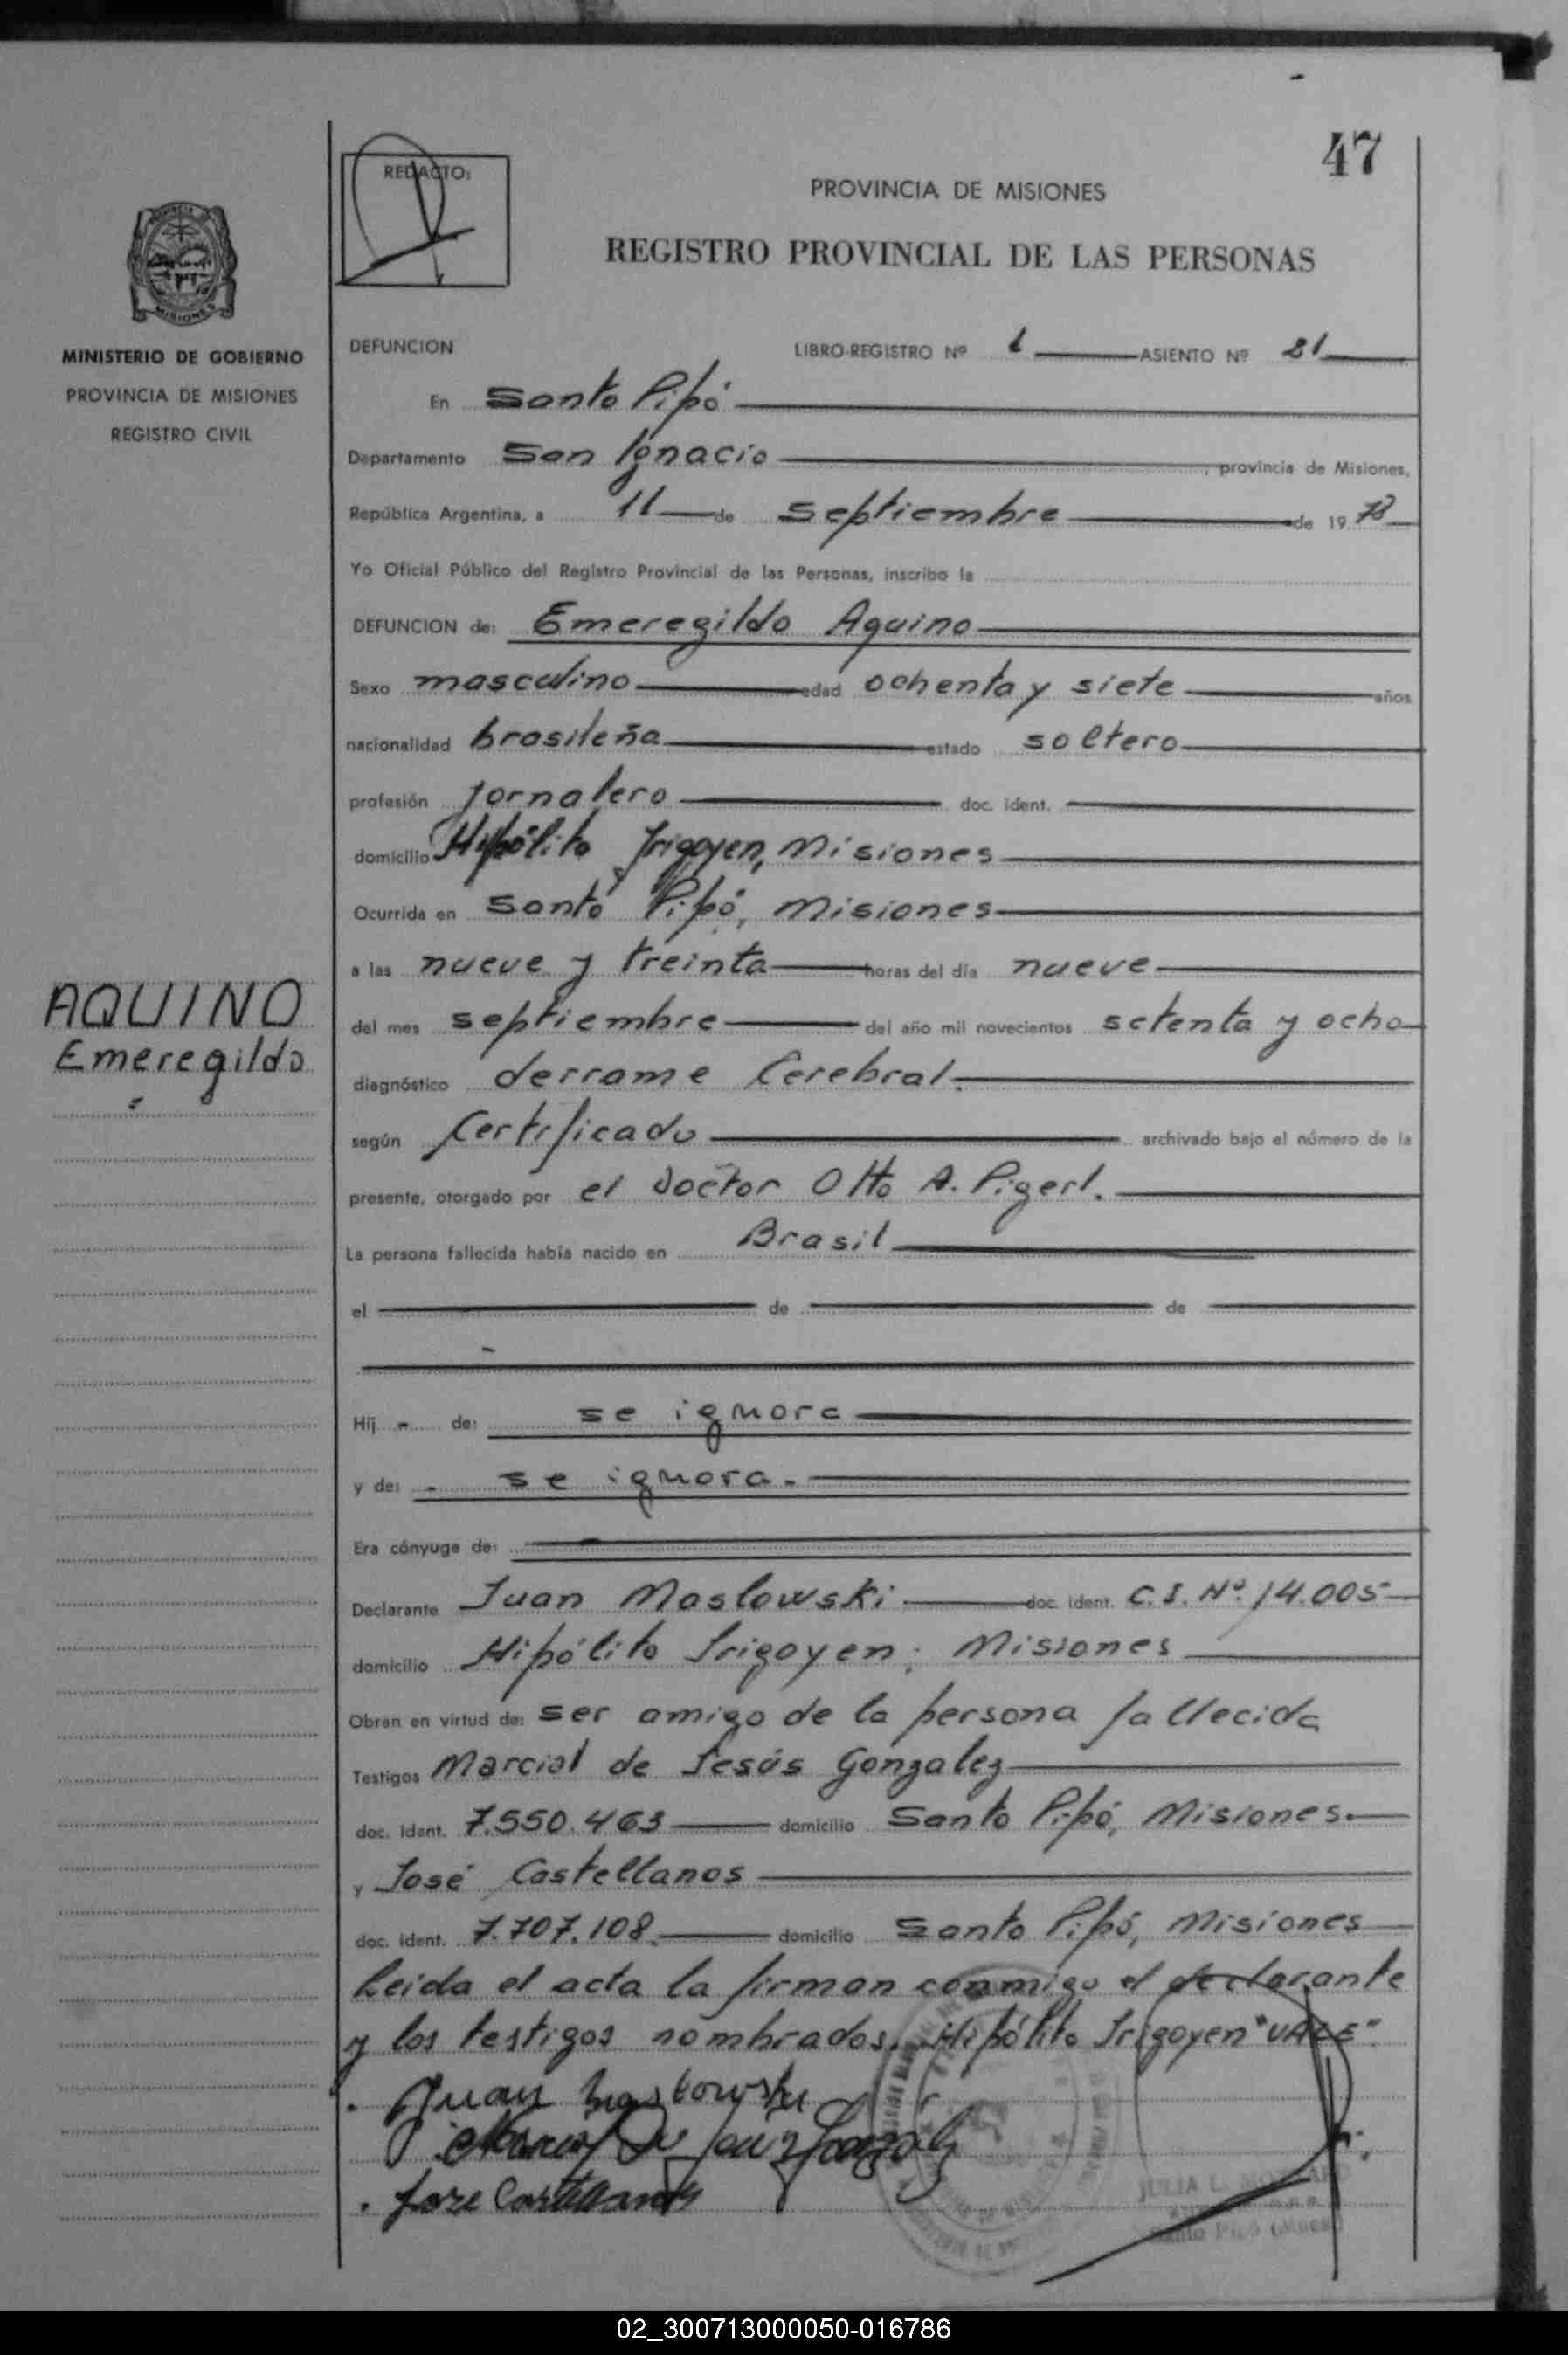 47
REDACTO:
PROVINCIA DE MISIONES
REGISTRO PROVINCIAL DE LAS PERSONAS
MISIONES
MINISTERIO DE GOBIERNO
PROVINCIA DE MISIONES
REGISTRO CIVIL
AQUINO
Emeregildo
DEFUNCION LIBRO-REGISTRO Nº 1 ASIENTO Nº 21
En Santo Pipó
Departamento San Ignacio, provincia de Misiones,
República Argentina, a 11 de septiembre de 1978
Yo Oficial Público del Registro Provincial de las Personas, inscribo la
DEFUNCION de: Emeregildo Aquino
Sexo masculino edad ochenta y siete años
nacionalidad brasileña estado soltero
profesión jornalero doc. ident.
domicilio Hipólito Irigoyen, Misiones
Ocurrida en Santo Pipó, Misiones
a las nueve y treinta horas del día nueve
del mes septiembre del año mil novecientos setenta y ocho
diagnóstico derrame Cerebral.
según Certificado archivado bajo el número de la
presente, otorgado por el Doctor Otto A. Pigerl.
La persona fallecida había nacido en Brasil
el de de
Hij - de: se ignora
y de: - se ignora.-
Era cónyuge de:
Declarante Juan Maslowski doc. ident. C.I. Nº 14.005
domicilio Hipólito Irigoyen; Misiones
Obran en virtud de: ser amigo de la persona fallecida
Testigos Marcial de Jesús Gonzalez
doc. ident. 7.550.463 domicilio Santo Pipó, Misiones.
y José Castellanos
doc. ident. 7.707.108. domicilio Santo Pipó, Misiones
Leida el acta la firman conmigo el declarante
y los testigos nombrados. Hipólito Irigoyen "VALE".
Juan Maslowski
Jose Castellanos
JULIA L.
Santo Pipó (Mnes.)
02_300713000050-016786